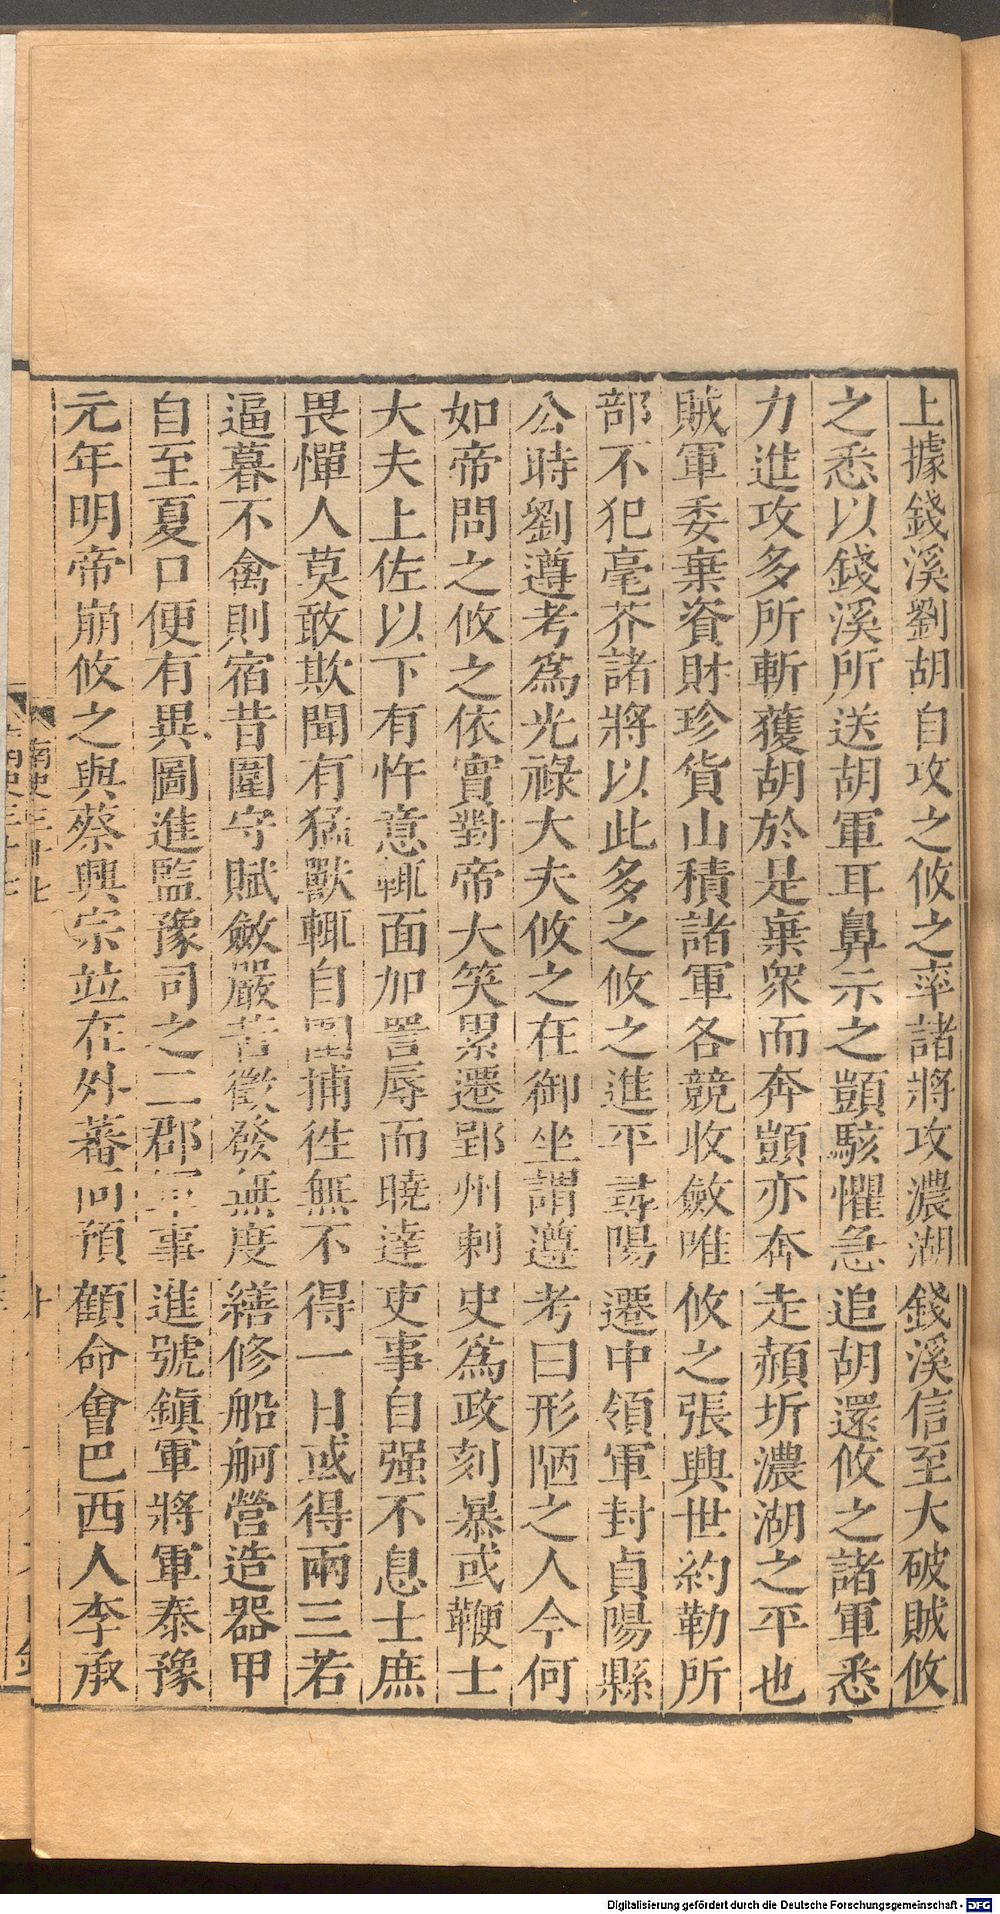 上據錢溪劉胡自攻之攸之率諸將攻濃湖錢溪信至大破賊攸
之悉以錢溪所送胡軍耳鼻示之顗駭懼急追胡還攸之諸軍悉
力進攻多所斬獲胡於是棄衆而奔顗亦奔走赭圻濃湖之平也
賊軍委棄資財珍貨山積諸軍各競收斂唯攸之張興世約勒所
部不犯毫芥諸將以此多之攸之進平尋陽遷中領軍封貞陽縣
公時劉遵考爲光祿大夫攸之在御坐謂遵考曰形陋之人今何
如帝問之攸之依實對帝大笑累遷郢州刺史爲政刻暴或鞭士
大夫上佐以下有忤意輒面加詈辱而曉達吏事自强不息士庶
畏憚人莫敢欺聞有猛獸輒自圍捕徃無不得一日或得兩三若
逼暮不禽則宿昔圍守賦斂嚴苦徵發無度繕修船舸營造器甲
自至夏口便有異圖進監豫司之二郡軍事進號鎮軍將軍泰豫
元年明帝崩攸之與蔡興宗竝在外蕃同預顧命會巴西人李承
南史三十七
Digitalisierung gefördert durch die Deutsche Forschungsgemeinschaft - DFG